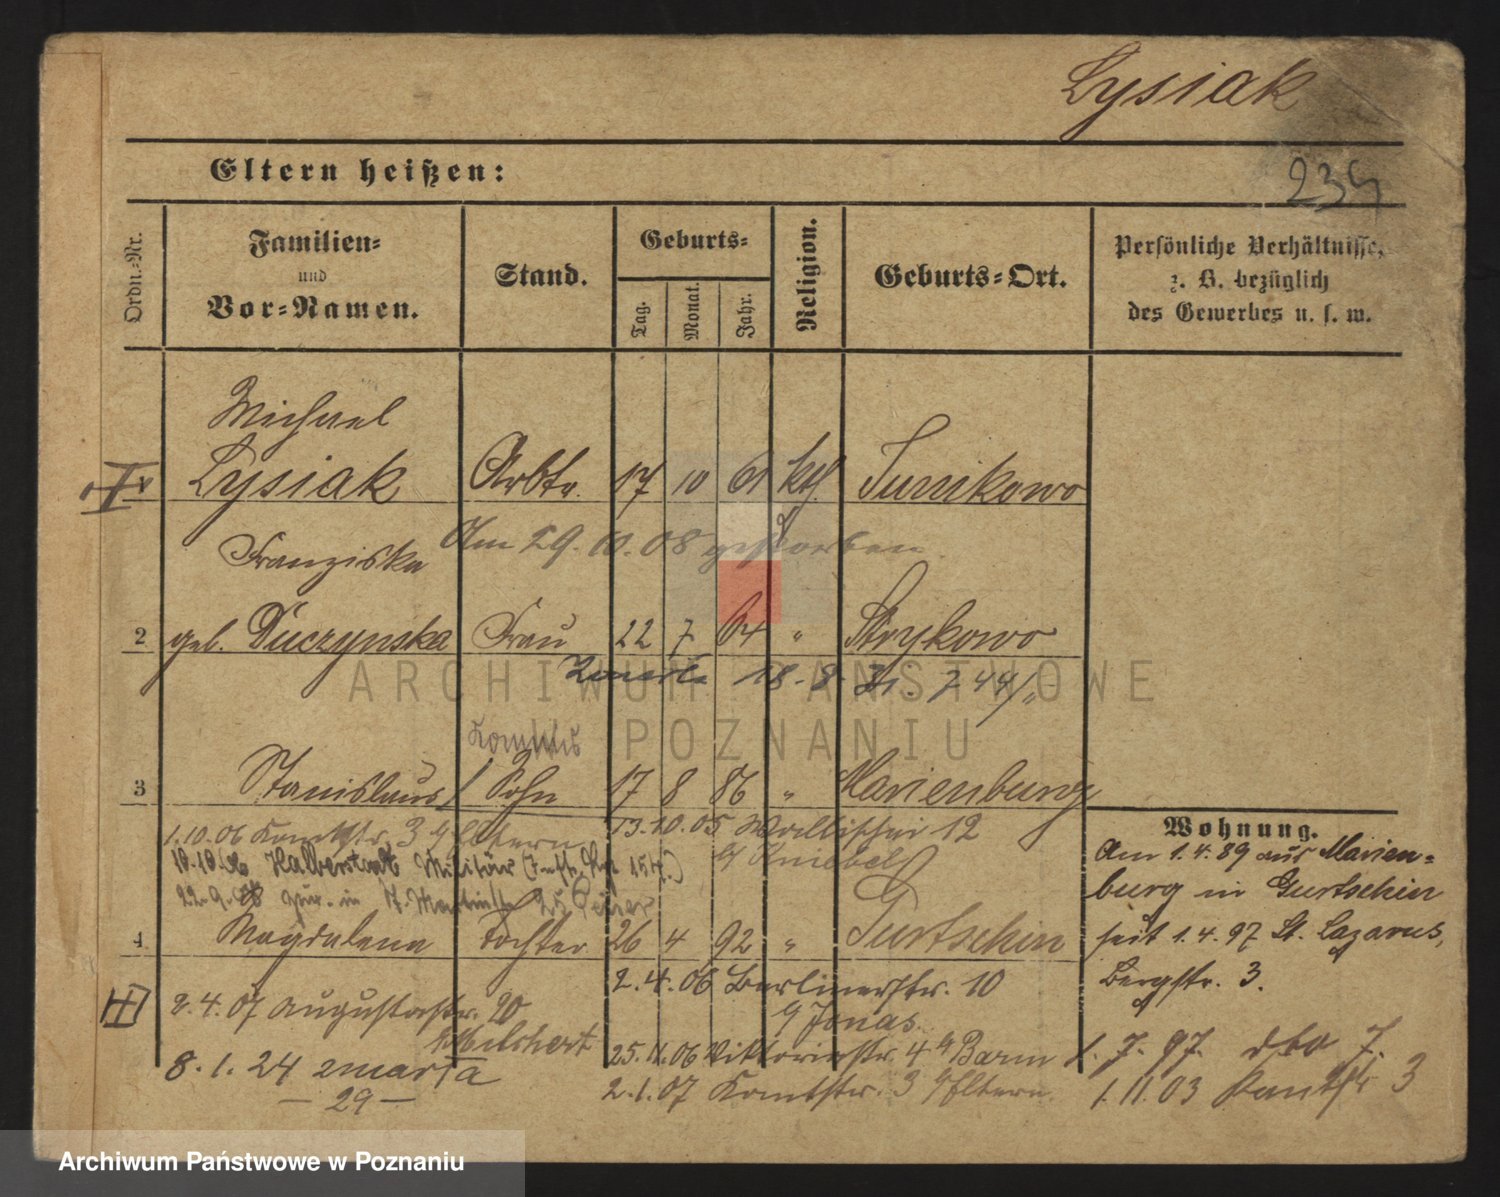 Lysiak
234
Eltern heißen:
Ordn.-Nr.
Familien-
und
Vor-Namen.
Stand.
Geburts-
Tag.
Monat.
Jahr.
Religion.
Geburts-Ort.
Persönliche Verhältnisse,
z. B. bezüglich
des Gewerbes u. s. w.
Michael
Lysiak Arbtr. 17 10 61 kth. Junikowo
Am 29. 10. 08 gestorben.
Franziska
2 geb. Duczynska Frau 22 7 64 " Strykowo
Zmarła 18. 8.
3 Stanislaus Sohn 17 8 86 " Marienburg
13.10.05 Wallischei 12
1.10.06 Kantstr. 3 b/ Eltern
10.10.06 Halberstadt Militär
22.9.08 zur. in
4 Magdalena Tochter 26 4 92 " Gurtschin
2.4.06 Berlinerstr. 10
b/ Jonas.
2.4.07 Augustastr. 20
25.11.06 Viktoriastr. 4 b/
8.1.24 zmarła
2.1.07 Kantstr. 3 b/ Eltern.
— 29 —
Wohnung.
Am 1.4.89 aus Marien-
burg in Gurtschin
seit 1.4.97 St. Lazarus,
Bergstr. 3.
1. 7. 97. dto 7.
1.11.03 Kantstr 3
ARCHIWUM PAŃSTWOWE
W POZNANIU
Archiwum Państwowe w Poznaniu